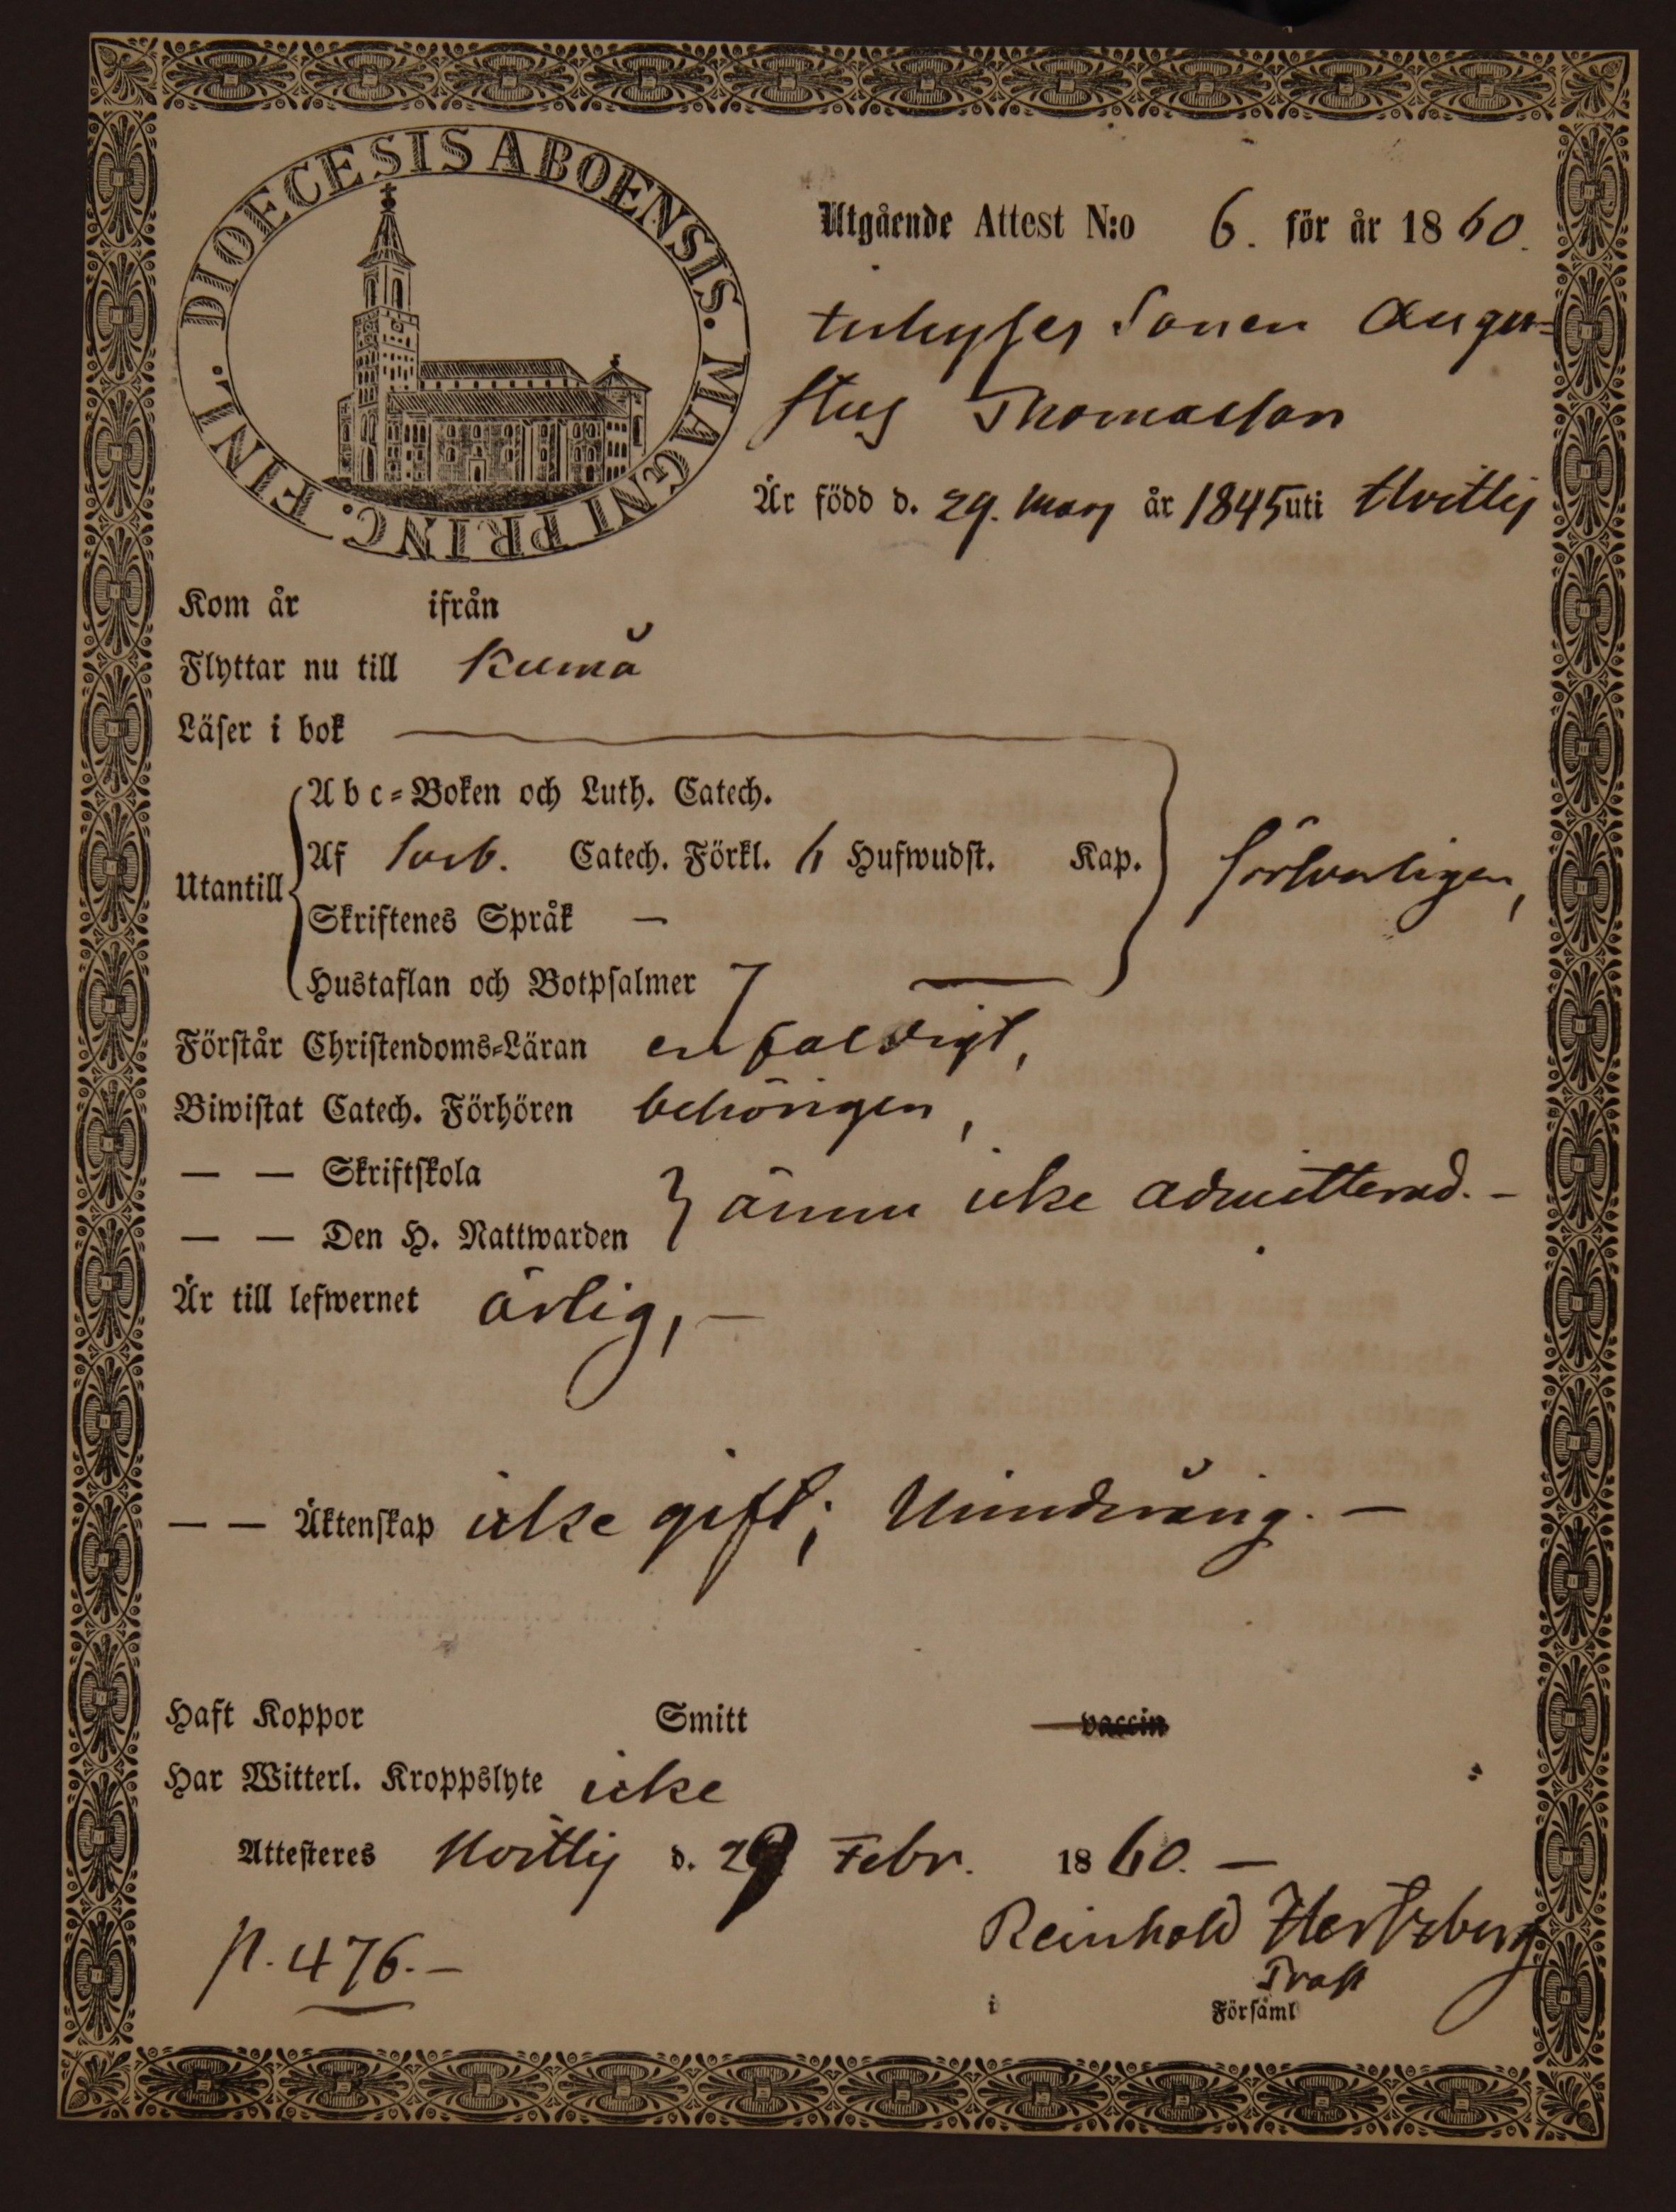 DIOECESIS ABOENSIS. MAGNI PRINC. FINL.
Utgående Attest N:o 6. för år 1860.
Sonen Augu=
stus Thomasson
Är född d. 29. Mars år 1845 uti Hvittis
Kom år ifrån
Flyttar nu till Kumå
Läser i bok
Abc=Boken och Luth. Catech.
Utantill
Af Catech. Förkl. 6 Hufwudst. Kap.
försvarligen,
Skriftenes Språk —
Hustaflan och Botpsalmer
Förstår Christendoms=Läran enfaldigt,
Biwistat Catech. Förhören behörigen,
— — Skriftskola
— — Den H. Nattwarden
ännu icke admitterad. —
Är till lefwernet ärlig, —
— — Äktenskap icke gift; Minderårig. —
Haft Koppor Smitt vaccin
Har Witterl. Kroppslyte icke
Attesteres Hvittis d. 29 Febr. 1860. —
p. 476. —
Reinhold Hertzberg
Prost
i Församl